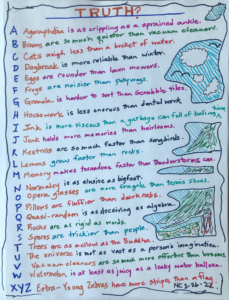 TRUTH?
A Agoraphobia is as crippling as a sprained ankle.
B Brooms are so much quieter than vacuum cleaners.
C Cats weigh less than a bucket of water.
D Daybreak is more reliable than winter.
E Eggs are rounder than lawn mowers.
F Frogs are noisier than polywogs.
G Granola is harder to sort than Scrabble tiles.
H Housework is less onerous than dental work.
I Ink is more viscous than a garbage can full of baking
J Junk holds more memories than heirlooms.
K Kestrels are so much faster than songbirds.
L Lemons grow faster than
M Memory makes tornadoes faster than thunderstorms can.
N Normalcy is as elusive as bigfoot.
O Opera glasses are more fragile than tennis shoes.
P Pillows are fluffier than
Q Quasi-random is as deceiving as algebra.
R Rocks are as rigid as words.
S Spores are trickier than people.
T Trees are as mellow as the Buddha.
U The universe is not as vast as a person's imagination.
V Vacuum cleaners are so much more effective than brooms
W Watermelon is at least as juicy as a leaky water balloon.
XYZ Extra-Young Zebras have more stripes than a flag.